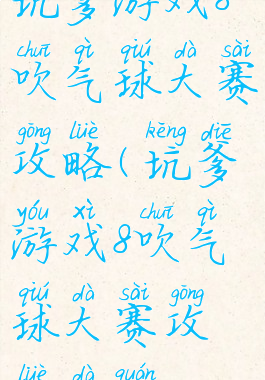 坑爹游戏8
chuī qì qiú dà sài
吹气球大赛
gōng lüè kēng diē
攻略(坑爹
yóu xì chuī qì
游戏8吹气
qiú dà sài gōng
球大赛攻
lüè dà quán